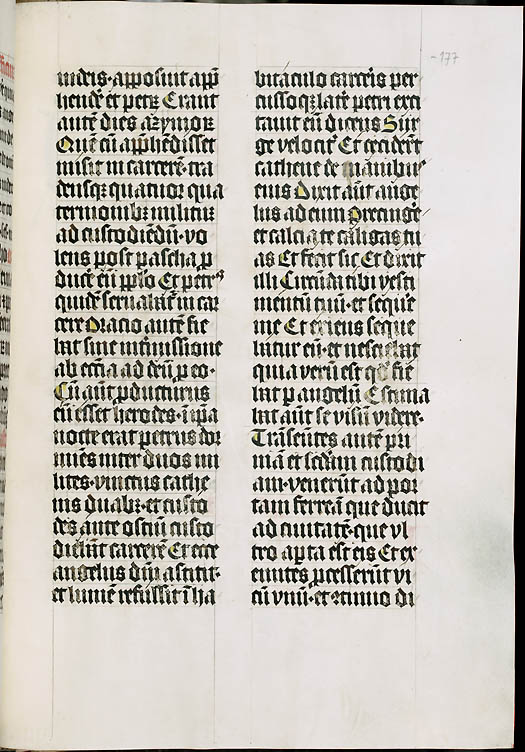 -177
iudeis · apposuit app̄
hende᷑ et petrū Erant
autē dies azymoꝝ
Quē cū apphēdisset
misit in carcerē · tra
densqꝫ quatuor qua
ternionibꝫ militum
ad custodiendū · vo
lens post pascha p
ducē eū pplo Et petrꝰ
quidē seruabat᷑ in car
cere Oracio autē fie
bat sine int̄missione
ab ecc̄ia ad deū p eo ·
Cū aūt pducturus
eū esset herodes · in ip̄a
nocte erat petrus dor
miēs inter duos mi
lites · vinctus cathe
nis duabꝫ · et custo
des ante ostiū custo
diebāt carcerē Et ecce
angelus dn̄i astitit ·
et lumē refulsit ī ha
bitaculo carceris per
cussoqꝫ lat̓e petri exci
tauit eū dicens Sur
ge velocit̓ Et ceciderūt
cathene de manibus
eius Dixit aūt ange
lus ad eum Precinge᷑
et calcia te caligas tu
as Et fecit sic Et dixit
illi Circūda tibi vesti
mentū tuū · et seque᷑
me Et exiens seque
batur eū · et nesciebat
quia verū est qd̓ fie
bat p angelū Estima
bat aūt se visū videre ·
Trāseūtes autē pri
mā et scd̄am custodi
am · venerūt ad por
tam ferreā que ducit
ad ciuitatē · que vl
tro ap̄ta est eis Et ex
euntes p̄cesserūt vi
cū vnū · et ꝯtinuo di